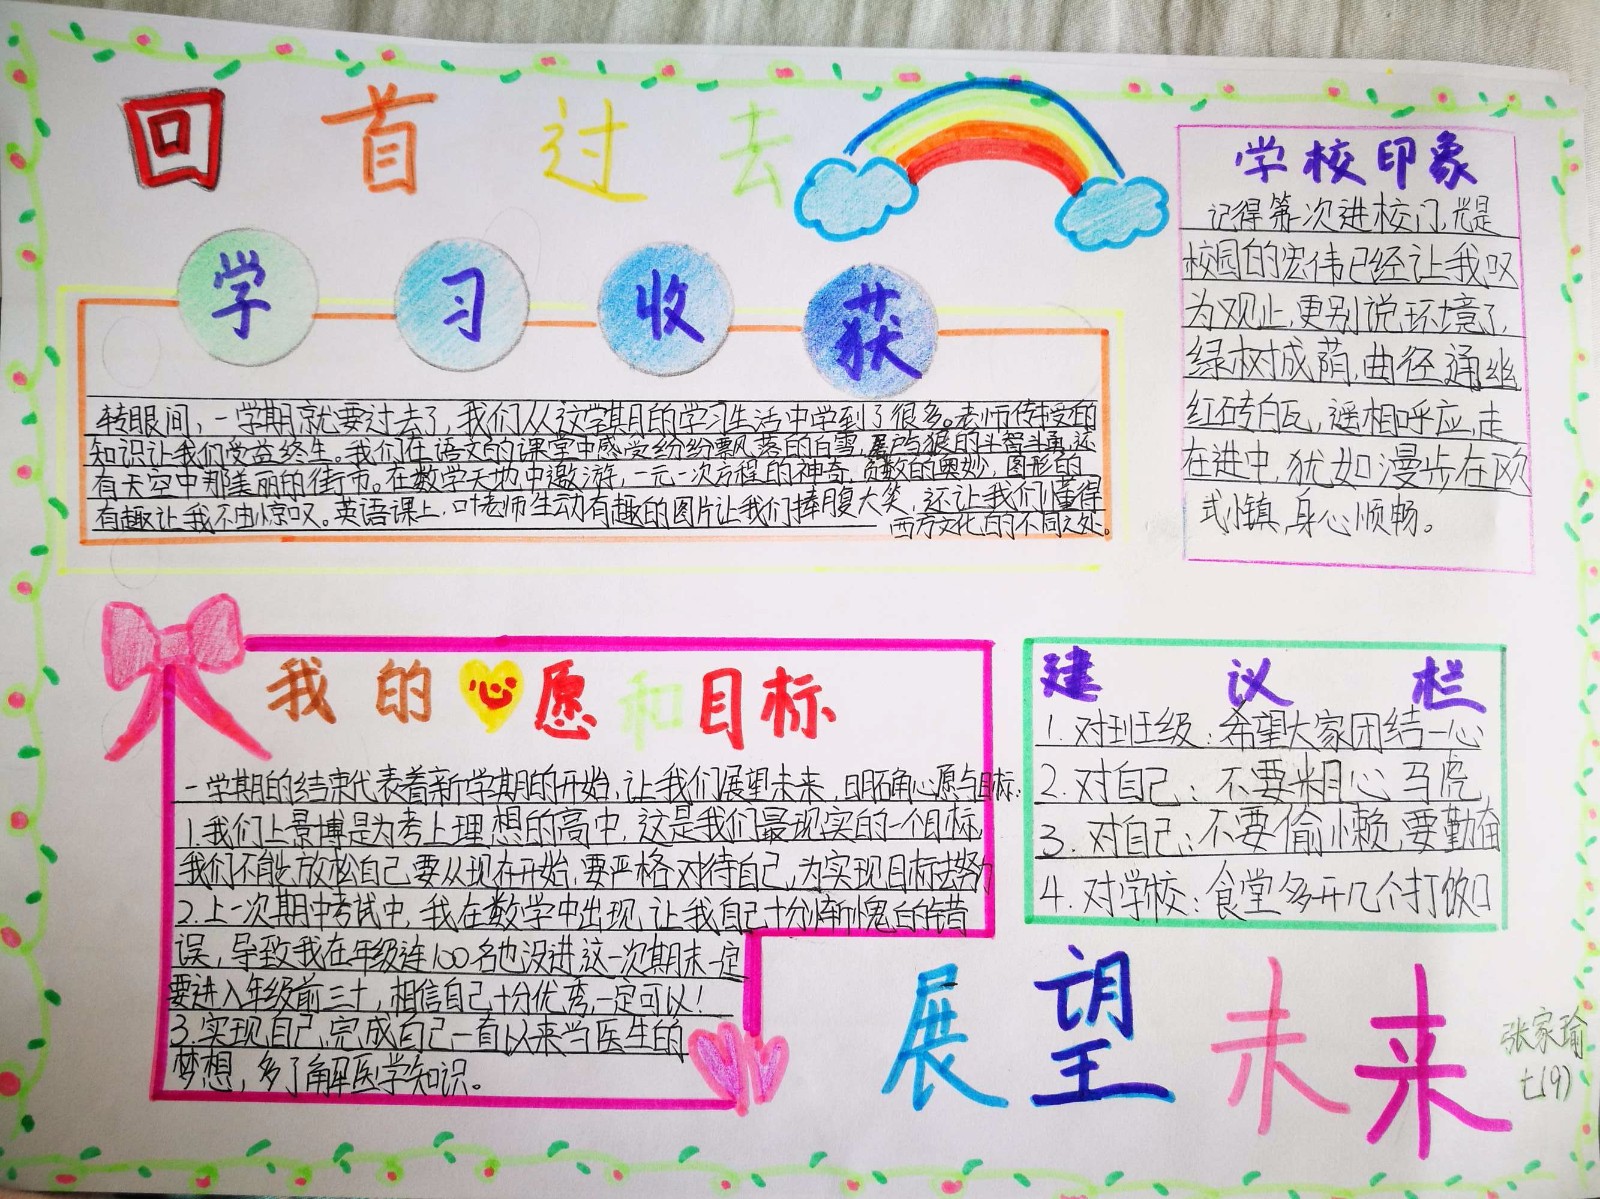 回首过去
学习收获
转眼间，一学期就要过去了，我们从这学期的学习生活中学到了很多。老师传授的
知识让我们受益终生。我们在语文的课堂中感受纷纷飘落的白雪，屠户与狼的斗智斗勇，还
有天空中那美丽的街市。在数学天地中遨游，一元一次方程的神奇，负数的奥妙，图形的
有趣让我不由惊叹。英语课上，叶老师生动有趣的图片让我们捧腹大笑，还让我们懂得
西方文化的不同之处。
学校印象
记得第一次进校门，光是
校园的宏伟已经让我叹
为观止，更别说环境了，
绿树成荫，曲径通幽
红砖白瓦，遥相呼应，走
在进中，犹如漫步在欧
式小镇，身心顺畅。
我的心愿和目标
一学期的结束代表着新学期的开始，让我们展望未来，明确心愿与目标：
1.我们上景博是为考上理想的高中，这是我们最现实的一个目标
我们不能放松自己，要从现在开始，要严格对待自己，为实现目标去努力
2.上一次期中考试中，我在数学中出现让我自己十分惭愧的错
误，导致我在年级连100名也没进，这一次期末一定
要进入年级前三十，相信自己十分优秀，一定可以！
3.实现自己，完成自己一直以来当医生的
梦想，多了解医学知识。
建议栏
1.对班级：希望大家团结一心
2.对自己：不要粗心马虎
3.对自己：不要偷懒，要勤奋
4.对学校：食堂多开几个打饭口
展望未来
张家瑜
七(9)